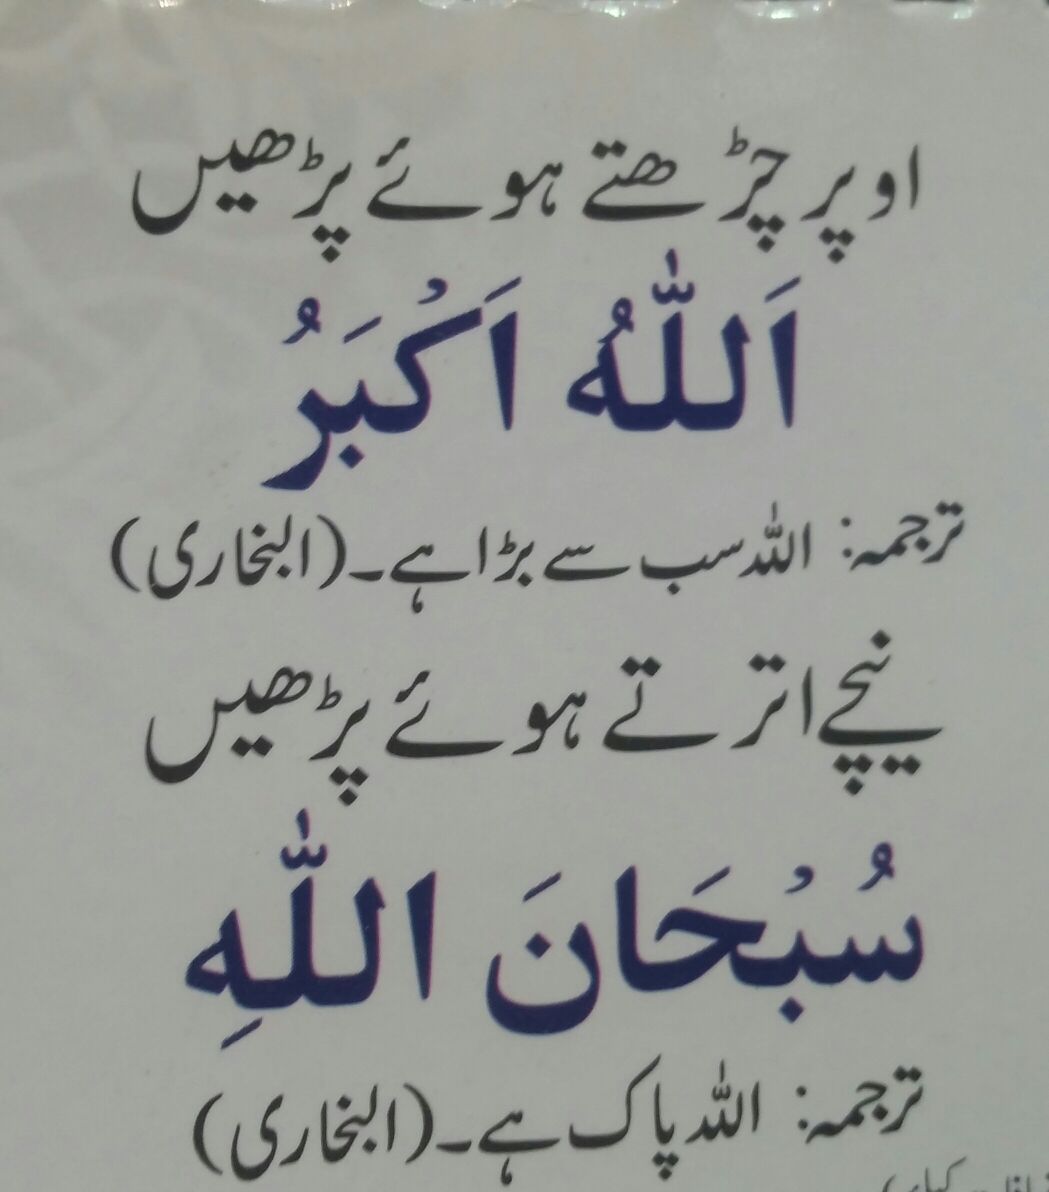 اوپر چڑھتے ہوئے پڑھیں
اَللّٰهُ اَكْبَرُ
ترجمہ: اللہ سب سے بڑا ہے۔ (البخاری)
نیچے اترتے ہوئے پڑھیں
سُبْحَانَ اللّٰهِ
ترجمہ: اللہ پاک ہے۔ (البخاری)